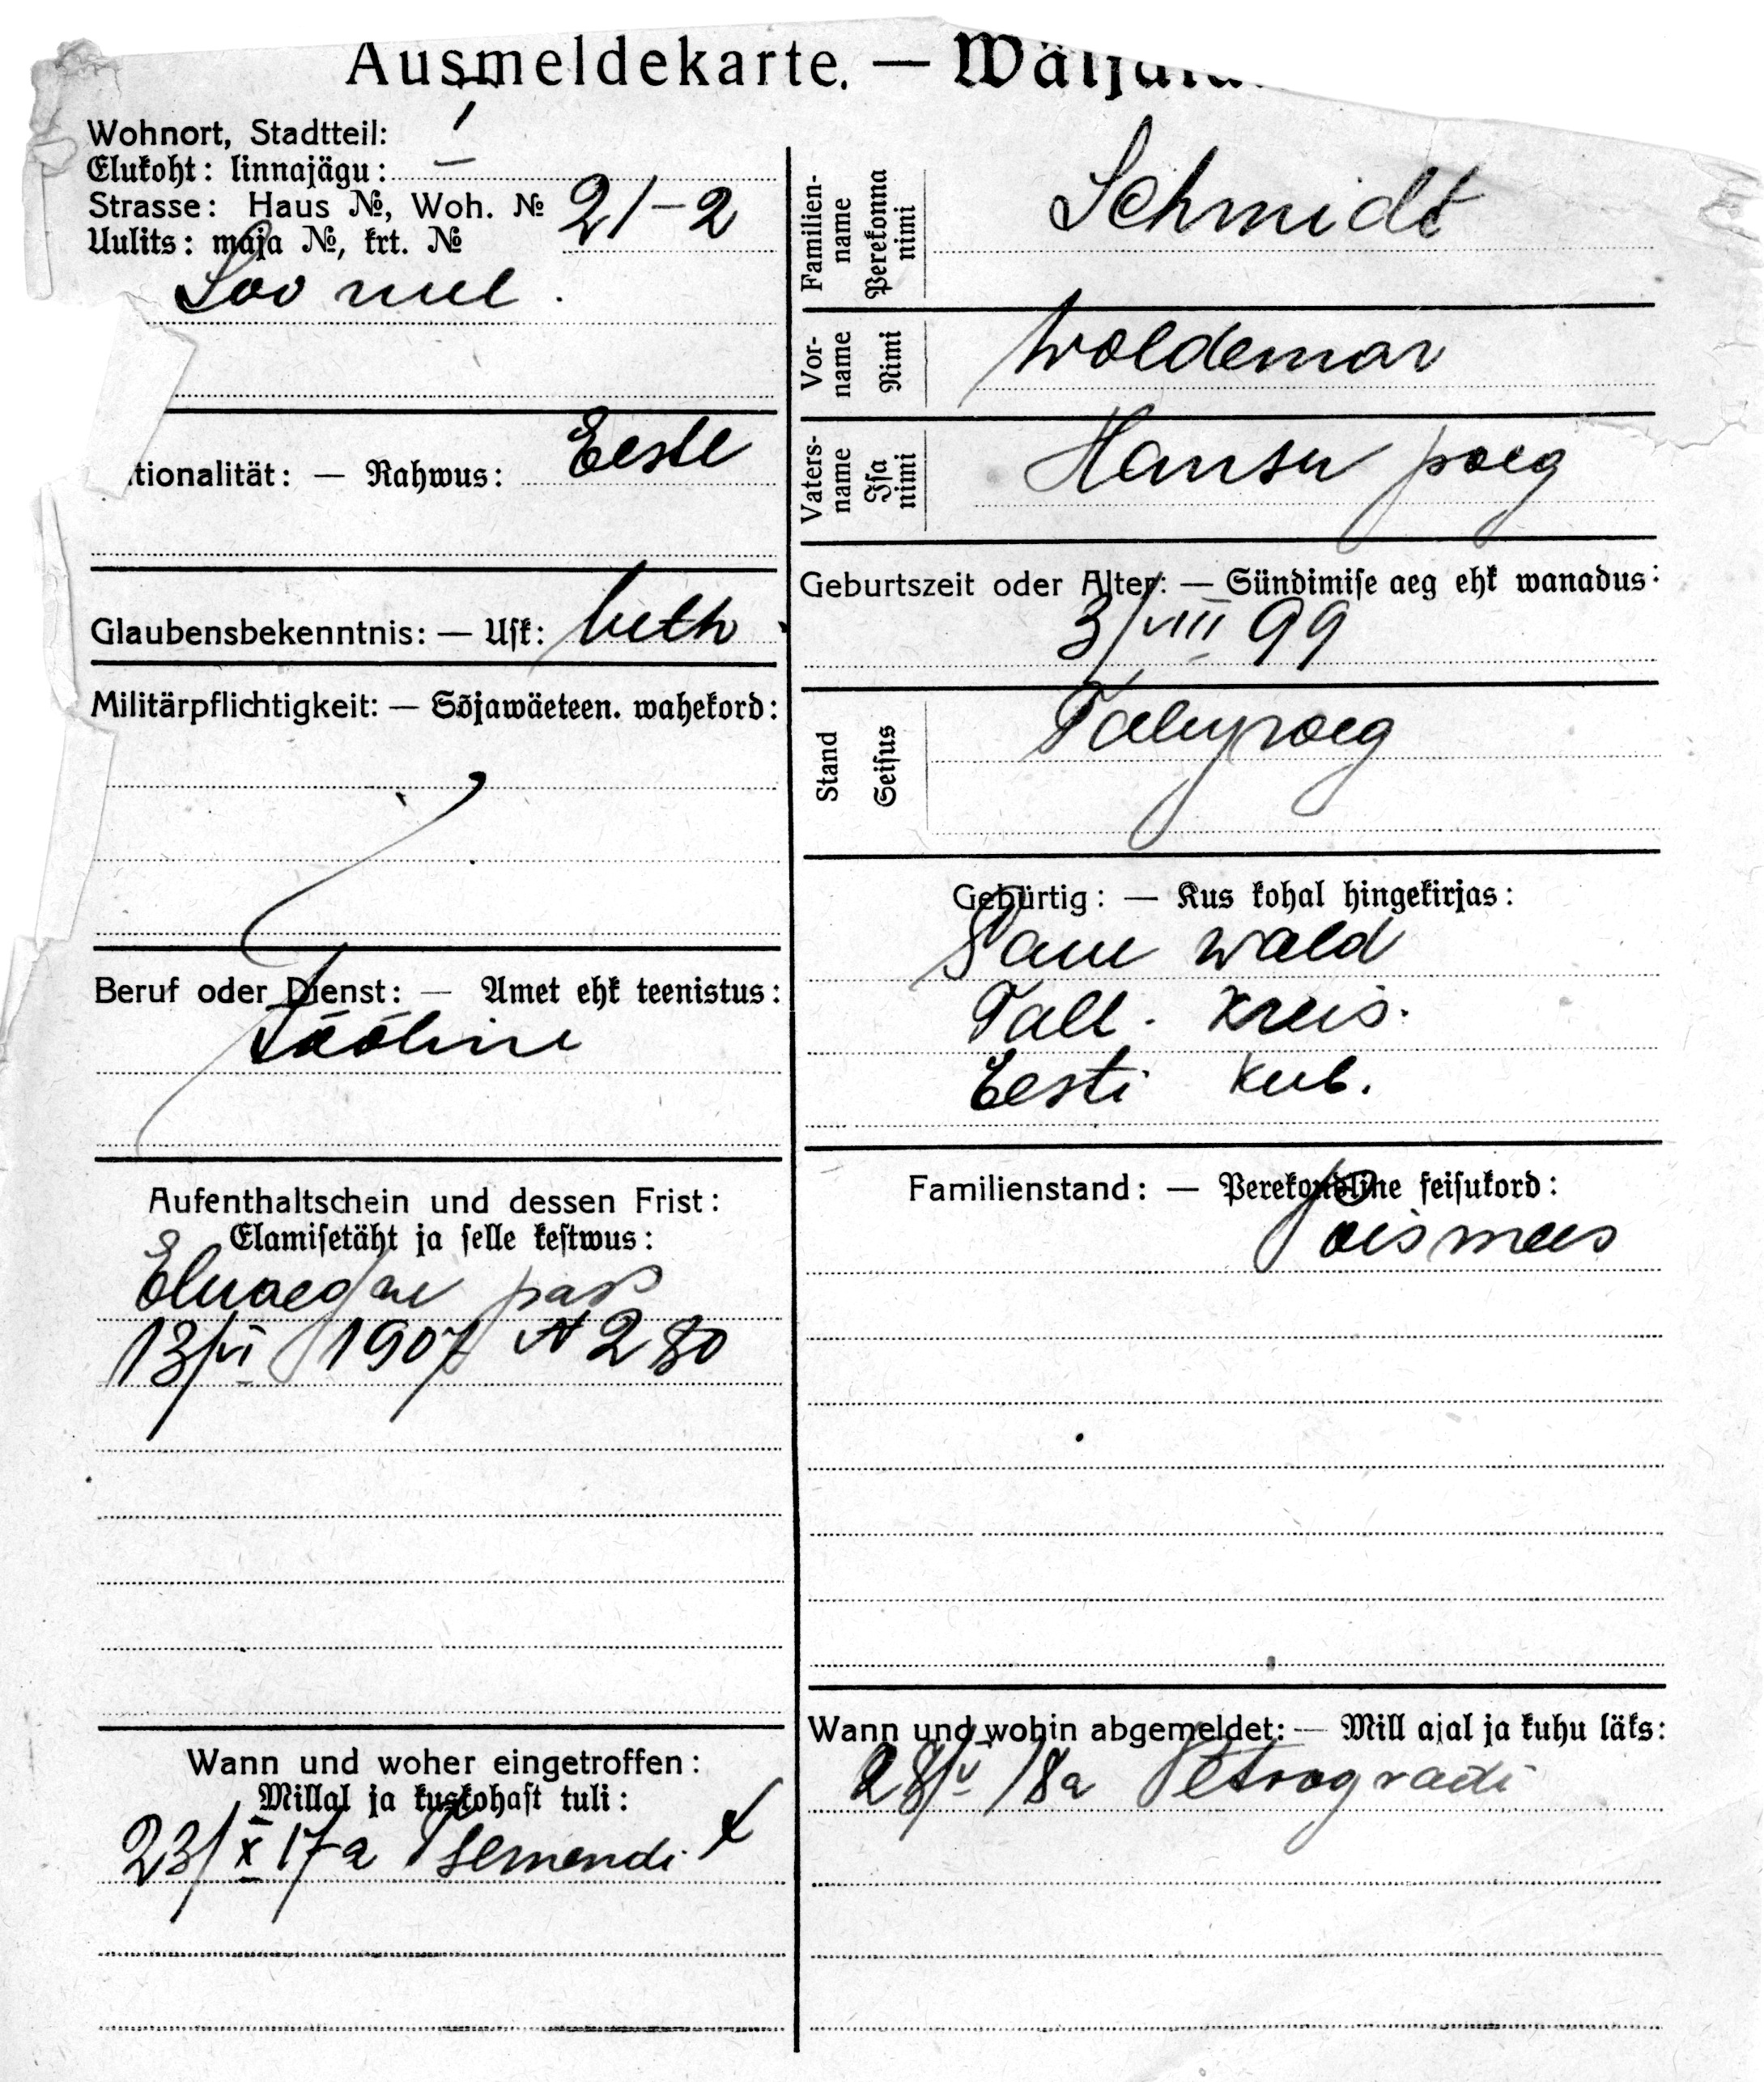 Ausmeldekarte. —
Wohnort, Stadtteil:
Elukoht: linnajägu: I
Strasse: Haus №, Woh. №
Uulits: maja №, krt. № 21-2
Soo uul.
tionalität: — Rahwus: Eesti
Glaubensbekenntnis: — Usk: luth
Militärpflichtigkeit: — Sõjawäeteen. wahekord:
Beruf oder Dienst: — Amet ehk teenistus:
Tööline
Aufenthaltschein und dessen Frist:
Elamisetäht ja selle kestwus:
Eluaegne pass
13/VI 1907 № 280
Wann und woher eingetroffen:
Millal ja kuskohast tuli:
23/X 17 a
Familien-
name
Perekonna
nimi
Schmidt
Vor-
name
Nimi
Woldemar
Vaters-
name
Isa
nimi
Hansu poeg
Geburtszeit oder Alter: — Sündimise aeg ehk wanadus:
3/VIII 99
Stand
Seisus
Talupoeg
Gebürtig: — Kus kohal hingekirjas:
wald
Tall. Kreis.
Eesti Kub.
Familienstand: — Perekondline seisukord:
Poismees
Wann und wohin abgemeldet: — Mill ajal ja kuhu läks:
28/V 18 a Petrogradi